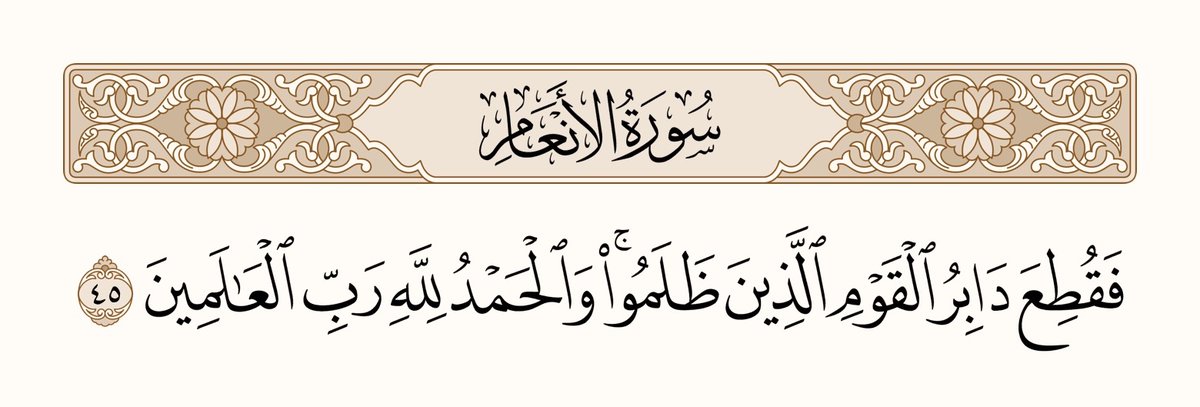 سُورَةُ الأَنْعَامِ
فَقُطِعَ دَابِرُ ٱلْقَوْمِ ٱلَّذِينَ ظَلَمُوا۟ۚ وَٱلْحَمْدُ لِلَّهِ رَبِّ ٱلْعَـٰلَمِينَ ٤٥